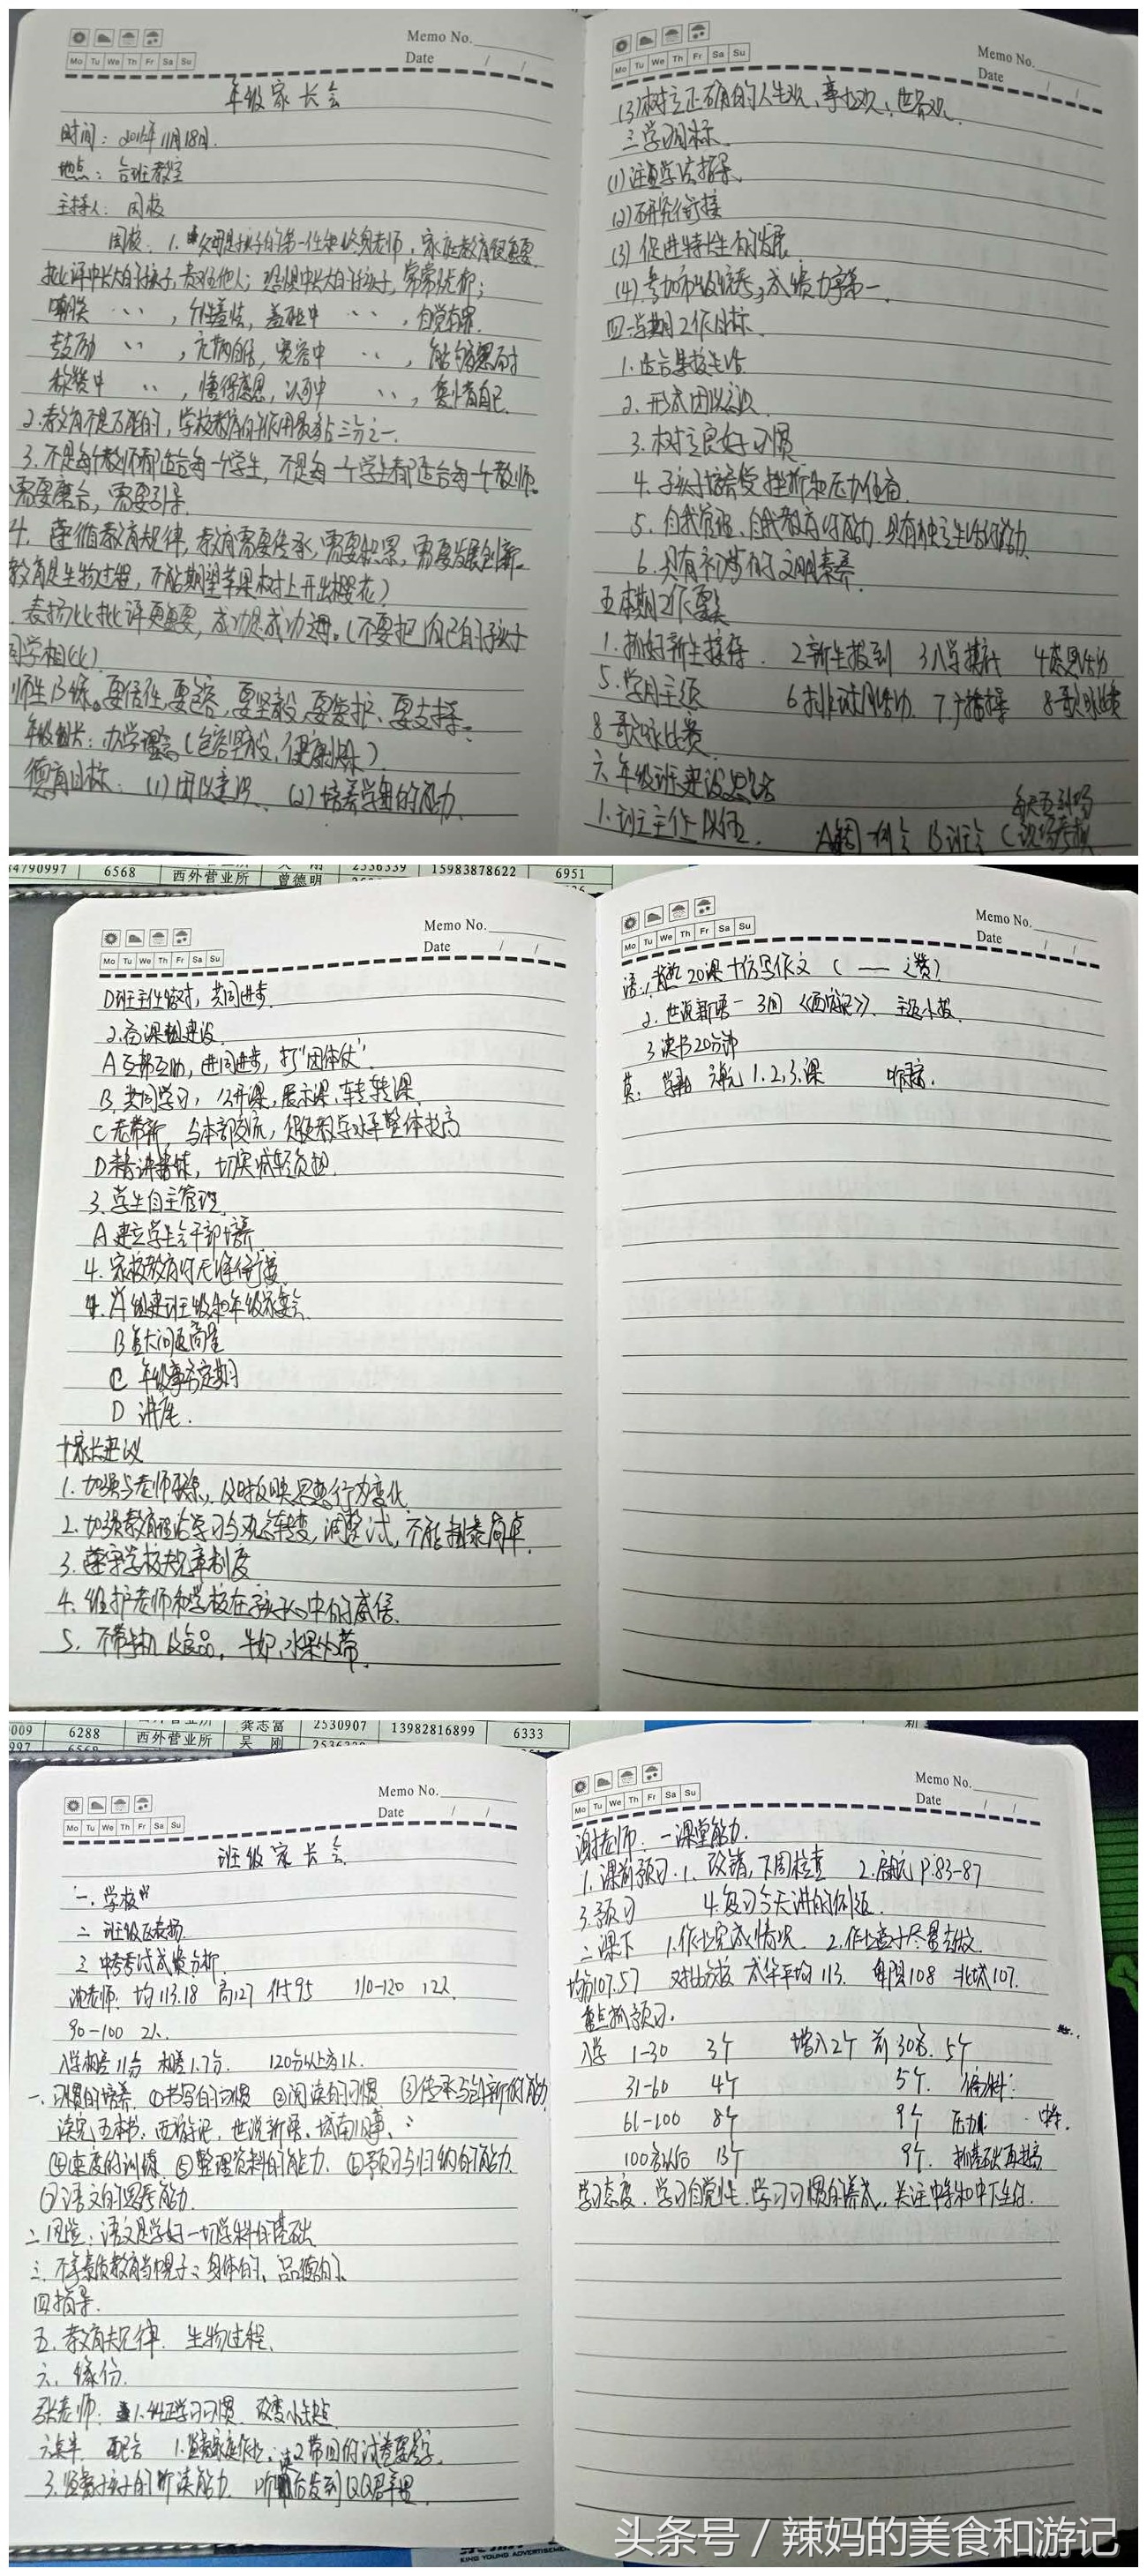 Memo No.
Date / /
Mo Tu We Th Fr Sa Su
年级家长会
时间：2016年11月18日.
地点：各班教室
主持人：周校
周校：1.父母是孩子的第一任和终身老师，家庭教育很重要.
批评中长大的孩子，责怪他人；恐惧中长大的孩子，常常忧郁；
嘲笑 …，个性羞怯，羞耻中 …，自觉有罪.
鼓励 …，充满自信，宽容中 …，能够忍耐
称赞中 …，懂得感恩，认可中 …，爱惜自己.
2.教育不是万能的，学校教育的作用最多占三分之一.
3.不是每个教师都适合每一个学生，不是每一个学生都适合每一个教师。
需要磨合，需要引导.
4.遵循教育规律，教育需要传承，需要积累，需要发展创新.
教育是生物过程，不能期望苹果树上开出樱花）
表扬比批评更重要，成功是成功之母。（不要把自己的孩子
同学相比）
师生 要信任，要包容，要坚毅，要爱护，要支持.
年级组长：办学理念（包容坚毅，健康快乐）
德育目标：(1)团队意识、(2)培养学生的能力
Memo No.
Date / /
Mo Tu We Th Fr Sa Su
(3)树立正确的人生观、事业观、世界观.
三 学习目标.
(1)注重学法指导、
(2)研究衔接
(3)促进特长生的发展
(4)参加市级统考，成绩力争第一.
四 学期工作目标.
1.适合集校生活.
2.形成团队意识.
3.树立良好习惯
4.孩子接受挫折和压力住宿.
5.自我管理、自我教育的能力.具有独立生活的能力.
6.具有初步的文明素养
五 本期工作要点
1.抓好新生接待. 2新生报到 3入学摸底 4感恩活动
5.学月主题 6排球风活动. 7.广播操 8歌咏比赛
8 歌咏比赛
六 年级班建设思路
1.班主任队伍. A每周一例会 B班会 C现场考核
34790997 6568 西外营业所 曾德明 2536339 15983878622 6951
Memo No.
Date / /
Mo Tu We Th Fr Sa Su
D班主任结对，共同进步.
2.备课组建设.
A互帮互助，进同进步，打“团体仗”
B.共同学习，公开课，展示课，转转课.
C老带新，与本部交流，促使教学水平整体提高
D精讲精练，切实减轻负担.
3.学生自主管理.
A建立学生会干部培养
4.家校教育的无缝衔接.
A组建班级和年级家委会.
B重大问题商量
C 年级事务定期
D 讲座.
七家长建议
1.加强与老师联系，及时反映思想行为变化
2.加强教育理论学习与观念转变，调整心态，不能粗暴简单.
3.遵守学校规章制度
4.维护老师和学校在孩子心中的威信.
5.不带手机及食品，牛奶、水果外带.
Memo No.
Date / /
Mo Tu We Th Fr Sa Su
语：1.背题20课十仿写作文（ —— 之赞）
2.世说新语一3周《西游记》、主题小报.
3.读书20分钟
英： 单元1.2.3.课 听录.
009 6288 西外营业所 龚志富 2530907 13982816899 6333
997 6568 吴刚
Memo No.
Date / /
Mo Tu We Th Fr Sa Su
班级家长会
一.学校
二 班级及表扬.
三 中考考试成绩分析.
沈老师：均113.18 高127 低95 110-120 12人.
90-100 2人.
入学相差11分 相差1.7分. 120分以上方1人.
一.习惯的培养 ①书写的习惯 ②阅读的习惯 ③传承与创新的能力
读完五本书：西游记，世说新语、城南旧事、
④速度的训练 ⑤整理资料的能力. ⑥预习与归纳的能力.
⑦语文的思考能力.
二.思路：语文是学好一切学科的基础
三.不拿素质教育当幌子：身体的、品德的、
四指导.
五.教育规律. 生物过程、
六.缘份.
张老师：1.纠正学习习惯.改变小缺点.
配合 1.监督家庭作业. 2.带回的试卷要签字.
3.监督孩子的听读能力. 听后发到QQ群里.
Memo No.
Date / /
Mo Tu We Th Fr Sa Su
谢老师：一课堂能力.
1.课前预习.1.改错，下周检查 2.启航P.83-87
3.预习 4.复习今天讲的例题.
二课下 1.作业完成情况. 2.作业查于尽量去做.
均分107.57 对比分校 成华平均113. 108 北城107.
重点抓预习.
入学 1-30 3个 增入2个 前30名.5个
31-60 4个 5个.
61-100 8个 9个 压力
100名以后 13个 9个. 抓基础再提高.
学习态度.学习自觉性.学习习惯的养成.关注中等和中下生的.
KING YOUNG ADVERTISEMENT
头条号 / 辣妈的美食和游记